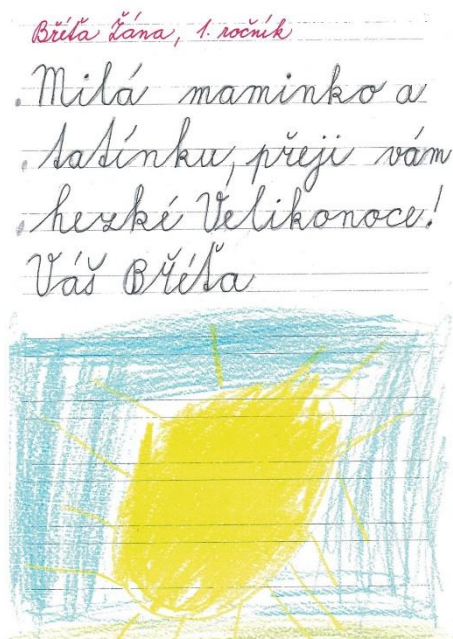 Bříťa Žána, 1. ročník
Milá maminko a
tatínku, přeji vám
hezké Velikonoce!
Váš Bříťa